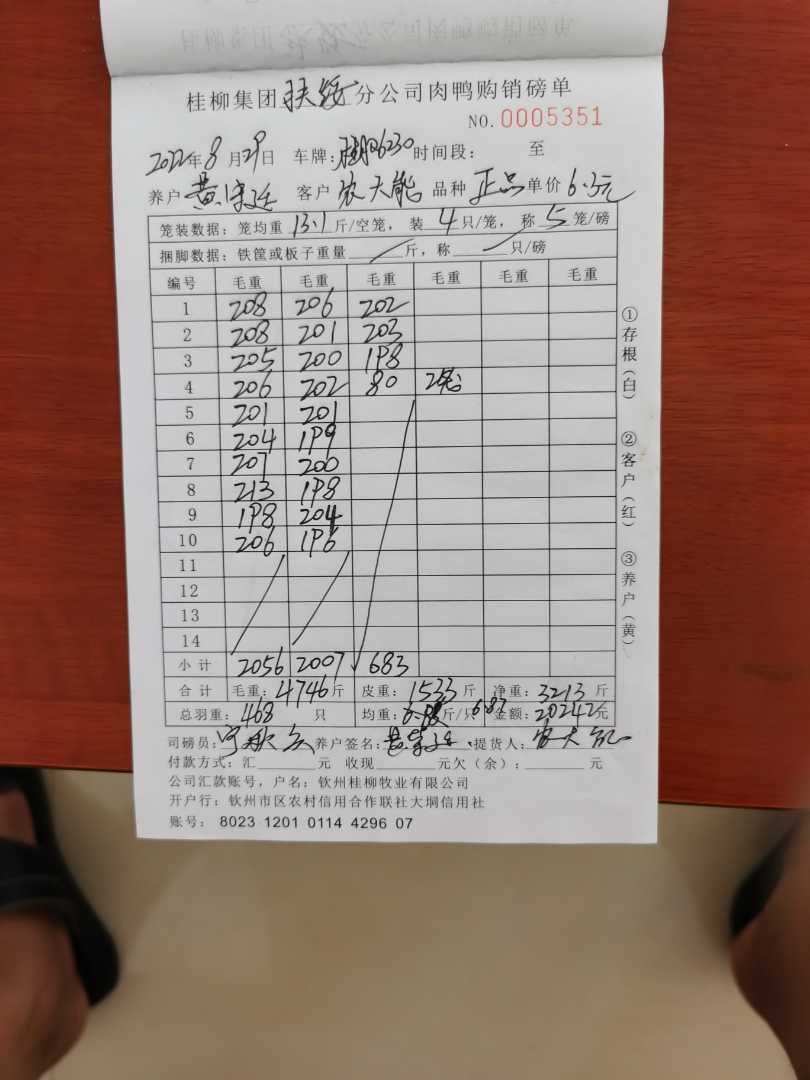 桂柳集团 扶绥 分公司肉鸭购销磅单
NO. 0005351
2022年8月29日 车牌: 06230 时间段: 至
养户 黄 廷 客户 农大能 品种 正品 单价 6.3元
笼装数据: 笼均重 13.1 斤/空笼, 装 4 只/笼, 称 5 笼/磅
捆脚数据: 铁筐或板子重量 / 斤, 称 / 只/磅
编号 毛重 毛重 毛重 毛重 毛重 毛重
1 208 206 202
2 208 201 203
3 205 200 198
4 206 202 80 2笼
5 201 201
6 204 199
7 207 200
8 213 198
9 198 204
10 206 196
11
12
13
14
小计 2056 2007 683
合计 毛重: 4746 斤 皮重: 1533 斤 净重: 3213 斤
总羽重: 468 只 均重: 斤/只 6.87 金额: 20242元
司磅员: 养户签名: 黄 廷 提货人: 农大能
付款方式: 汇 元 收现 元欠(余): 元
公司汇款账号, 户名: 钦州桂柳牧业有限公司
开户行: 钦州市区农村信用合作联社大垌信用社
账号: 8023 1201 0114 4296 07
①存根(白) ②客户(红) ③养户(黄)